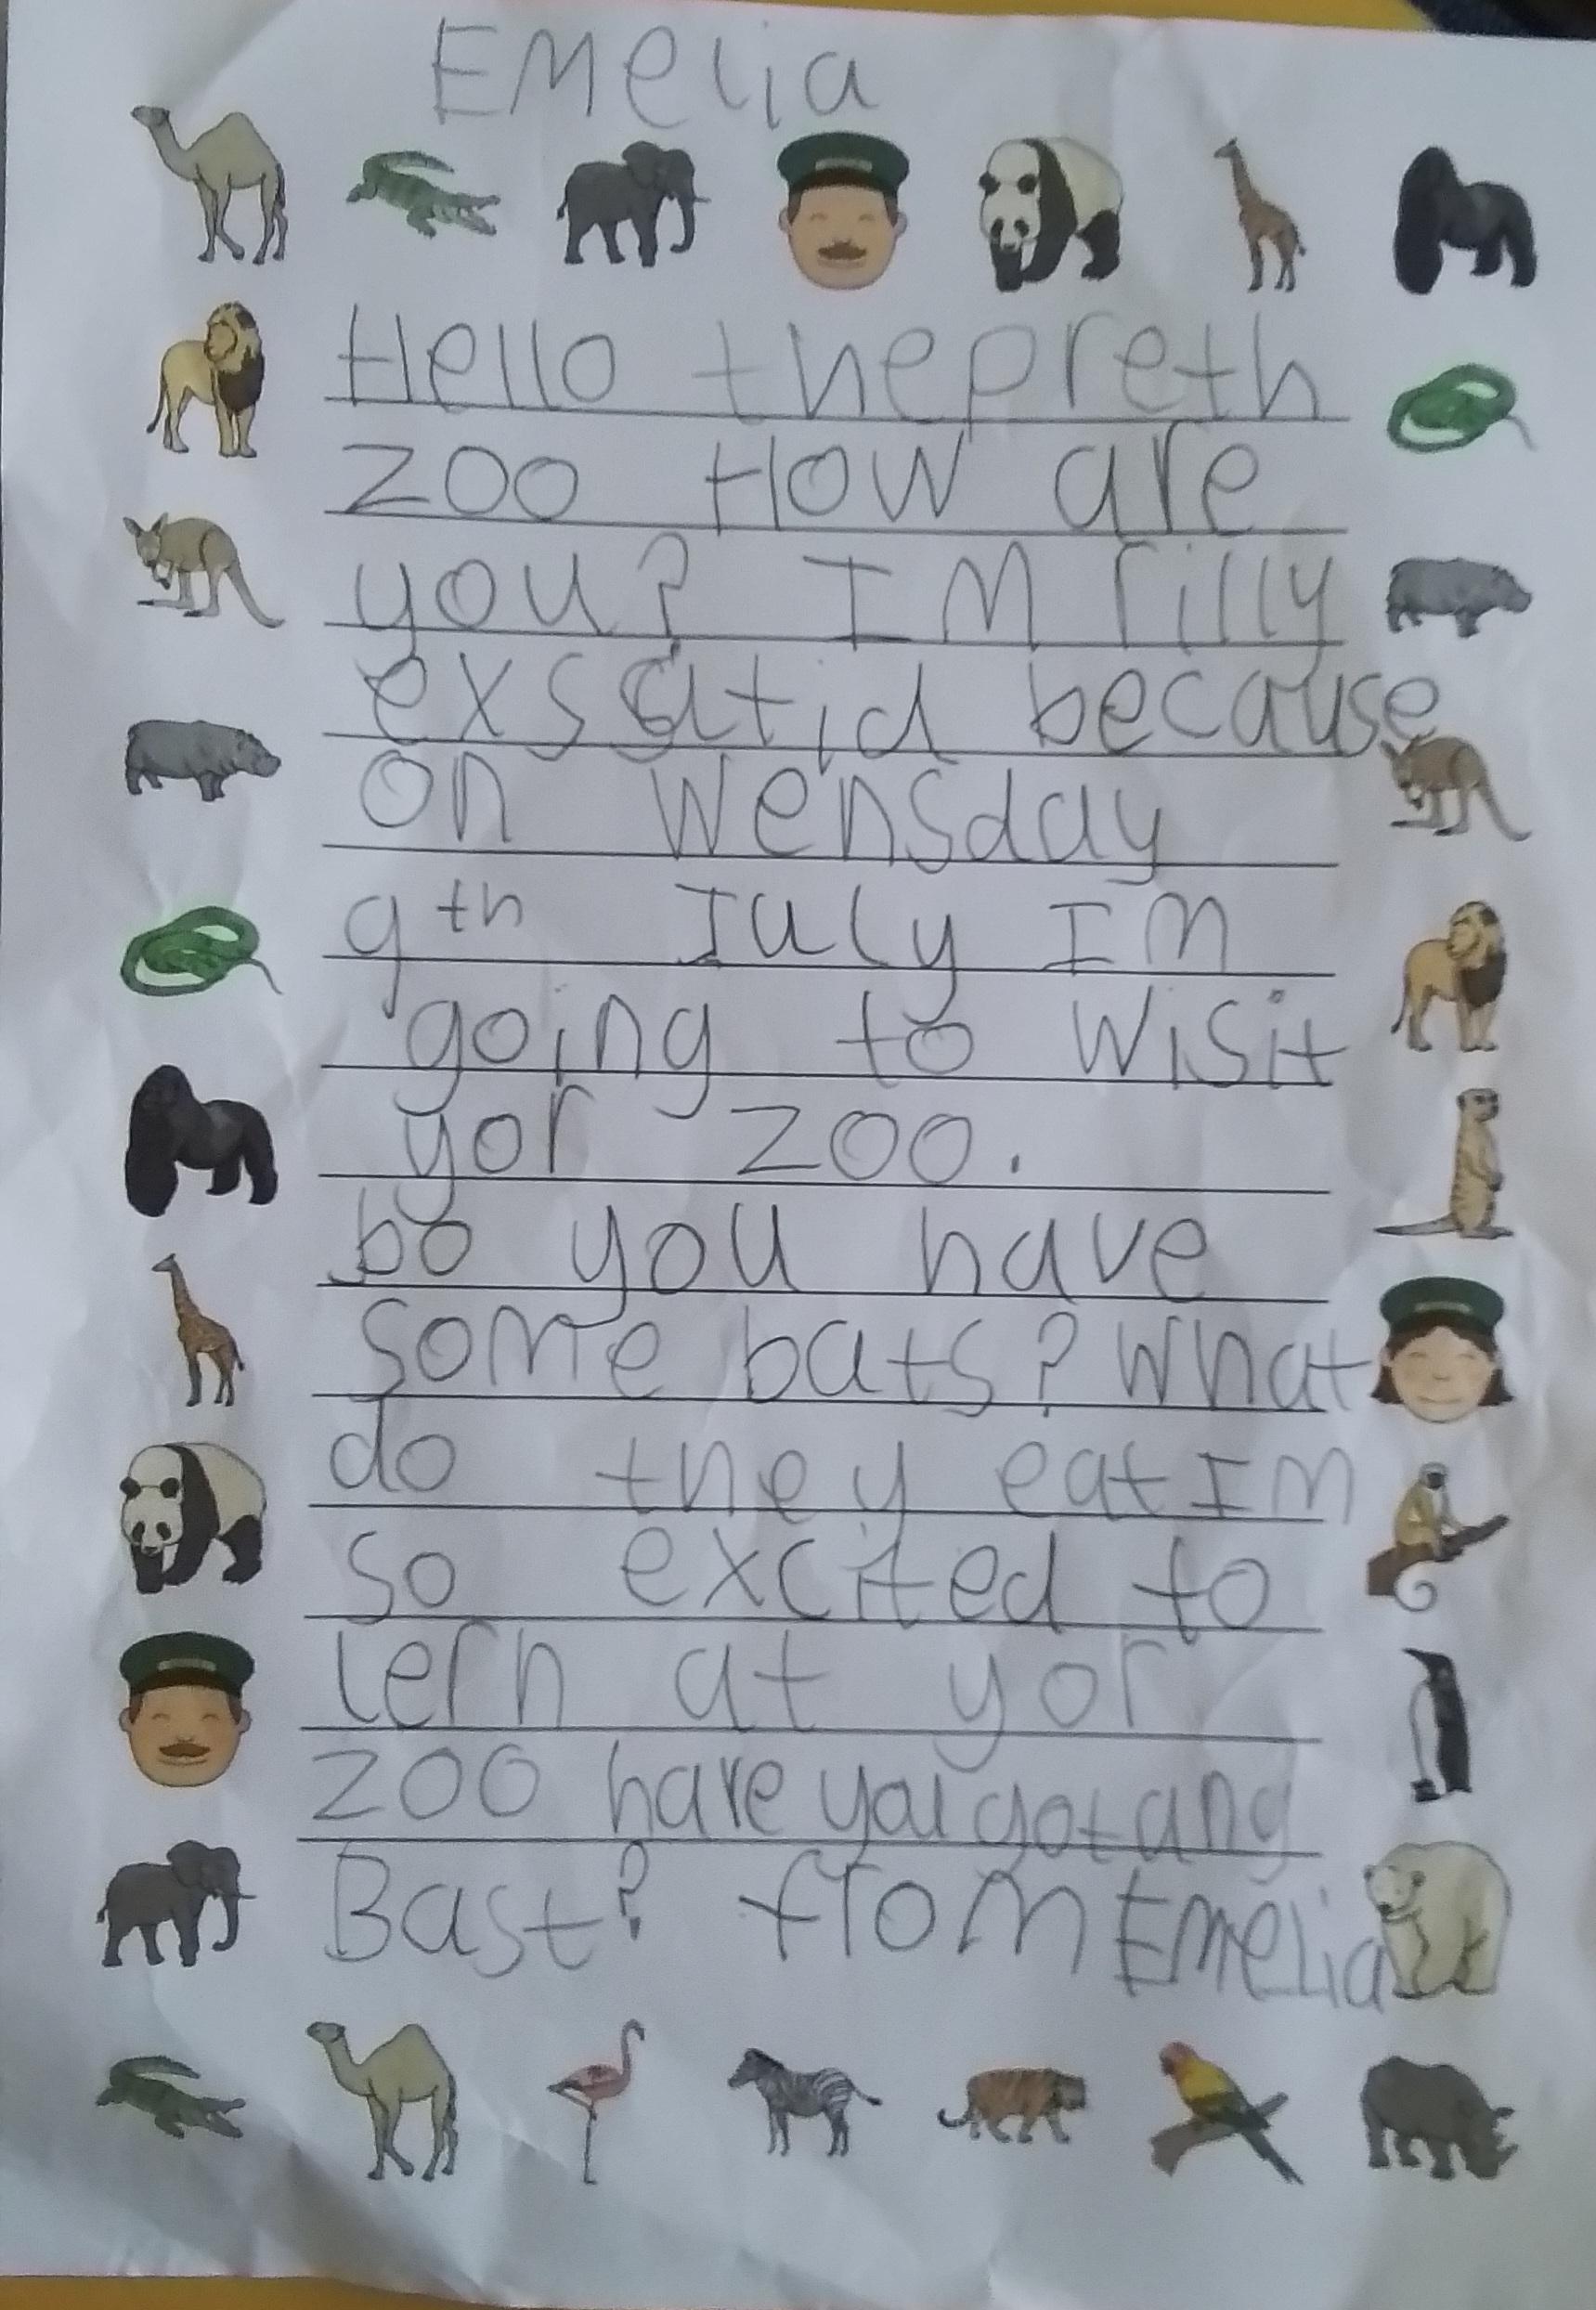 Emelia
Hello thepreth
zoo How are
you? IM rilly
exsatid because
on wensday
9th July IM
going to wisit
yor zoo.
bo you have
some bats? What
do they eat IM
so excited to
lern at yor
zoo have you got any
Bast? from Emelia